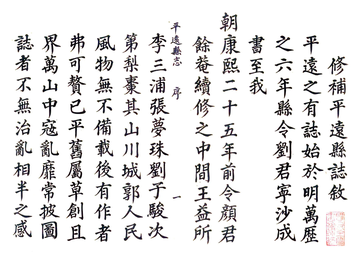 修補平遠縣誌敘
平遠之有誌始於明萬歷
之六年縣令劉君寧沙成
書至我
朝康熙二十五年前令顏君
餘菴續修之中間王益所
平遠縣志 序 一
李三浦張夢珠劉于駿次
第梨棗其山川城郭人民
風物無不備載後有作者
弗可贅已平舊屬草創且
界萬山中寇亂靡常披圖
誌者不無治亂相半之感